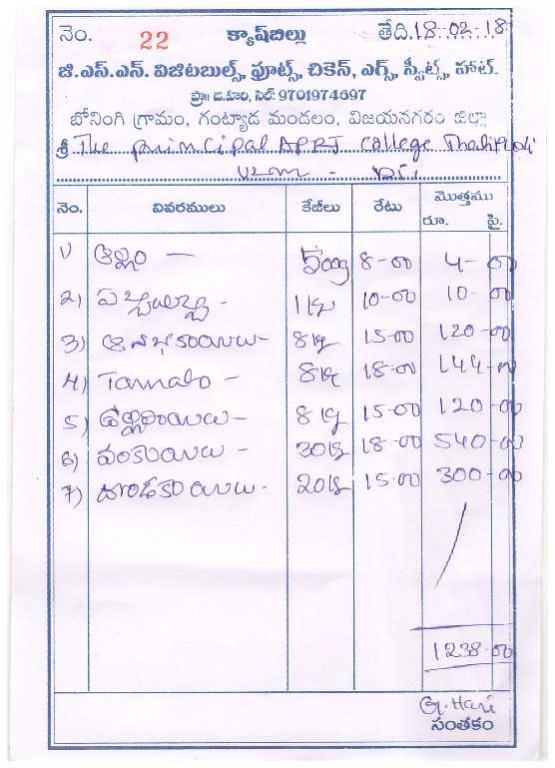 నెం. 22 క్యాష్‌బిల్లు తేది.18-02-18
జి.ఎస్.ఎన్. విజిటబుల్స్, ఫ్రూట్స్, చికెన్, ఎగ్స్, స్వీట్స్, హాట్.
ప్రొ॥ జి.హరి, సెల్: 9701974697
బోనింగి గ్రామం, గంట్యాడ మండలం, విజయనగరం జిల్లా
శ్రీ The principal APRJ College Thatipudi
VZM - Dt.
నెం. వివరములు కేజీలు రేటు మొత్తము
రూ. పై.
1) అల్లం - 500g 8-00 4-00
2) 1kg 10-00 10-00
3) ఆనభకాయలు- 8kg 15-00 120-00
4) Tamato - 8kg 18-00 144-00
5) ఉల్లిపాయలు- 8kg 15-00 120-00
6) వంకాయలు - 30kg 18-00 540-00
7) దొండకాయలు. 20kg 15-00 300-00
1238-00
G. Hari
సంతకం